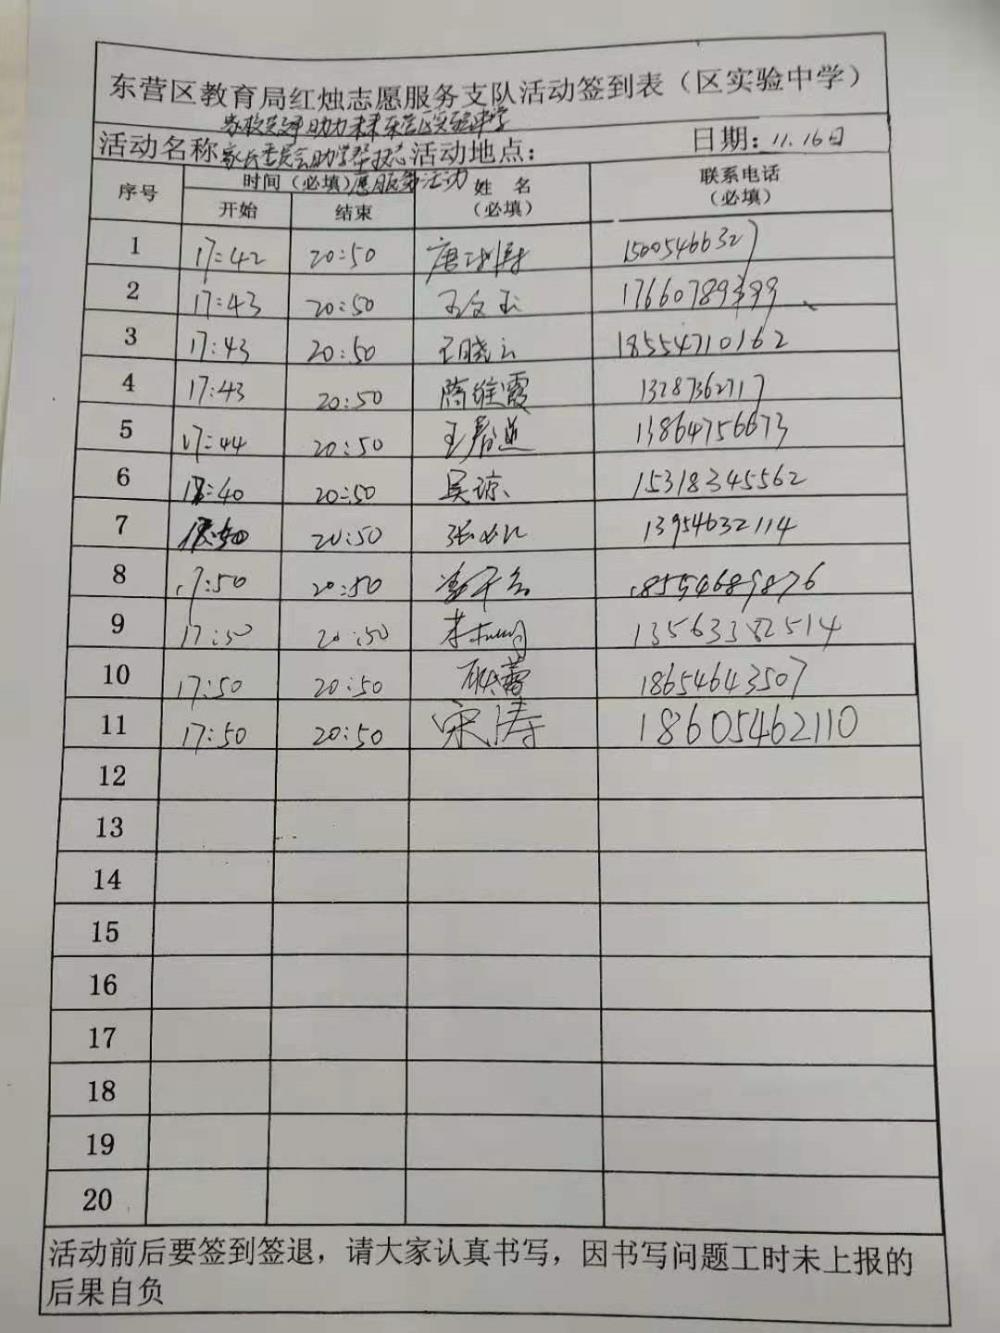 东营区教育局红烛志愿服务支队活动签到表（区实验中学）
家校共建 助力未来 东营区实验中学
活动名称 家长委员会助学帮扶志 活动地点： 日期：11.16日
愿服务活动
序号 时间（必填） 姓 名（必填） 联系电话（必填）
开始 结束
1 17:42 20:50 15005466327
2 17:43 20:50 王文玉
3 17:43 20:50 王晓云 18554710162
4 17:43 20:50 蒋维霞 13287362717
5 17:44 20:50 王春燕 13864756673
6 20:50 吴琼 15318345562
7 20:50 13954632114
8 17:50 20:50 18554689876
9 17:50 20:50 13563382514
10 17:50 20:50 耿蕾 18654643507
11 17:50 20:50 宋涛 18605462110
12
13
14
15
16
17
18
19
20
活动前后要签到签退，请大家认真书写，因书写问题工时未上报的
后果自负